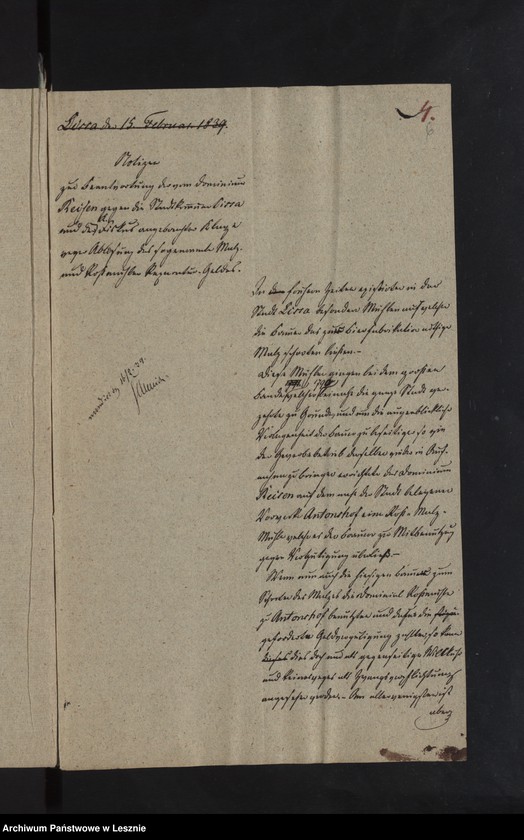 4.
6
Lissa den 15. Februar 1839.
Notizen
zur Beantwortung der vom Dominium
Reisen gegen die Stadtkommune Lissa
und den Fiskus angebrachten Klage
wegen Ablösung des sogenannten Malz-
und Roßmühlen Reparatur-Geldes.
mundirt 16/2. 39.
In frühern Zeiten existirten in der
Stadt Lissa besondere Mühlen auf welchen
die Brauer das zur Bierfabrikation nöthige
Malz schroten ließen.-
Diese Mühlen gingen bei dem großen
Brande welcher die ganze Stadt ver-
zehrte zu Grunde, und um die augenblickliche
Verlegenheit der Brauer zu beseitigen so wie
den Gewerbebetrieb derselben wieder in Auf-
nahme zu bringen errichtete das Dominium
Reisen auf dem nahe der Stadt belegenen
Vorwerk Antonshof eine Roß- Malz-
Mühle welche es den Brauern zur Mitbenutzung
gegen Vergütigung überließ.-
Wenn nun auch die hiesigen Brauer zum
Schroten des Malzes die Dominial Roßmühle
zu Antonshof benutzten und dafür die
geforderte Geldvergütigung zahlten, so kann
dies doch nur als gegenseitige Willkühr
und keinesweges als Zwangsverpflichtung
angesehen werden.- Am allerwenigsten ist
aber
Archiwum Państwowe w Lesznie